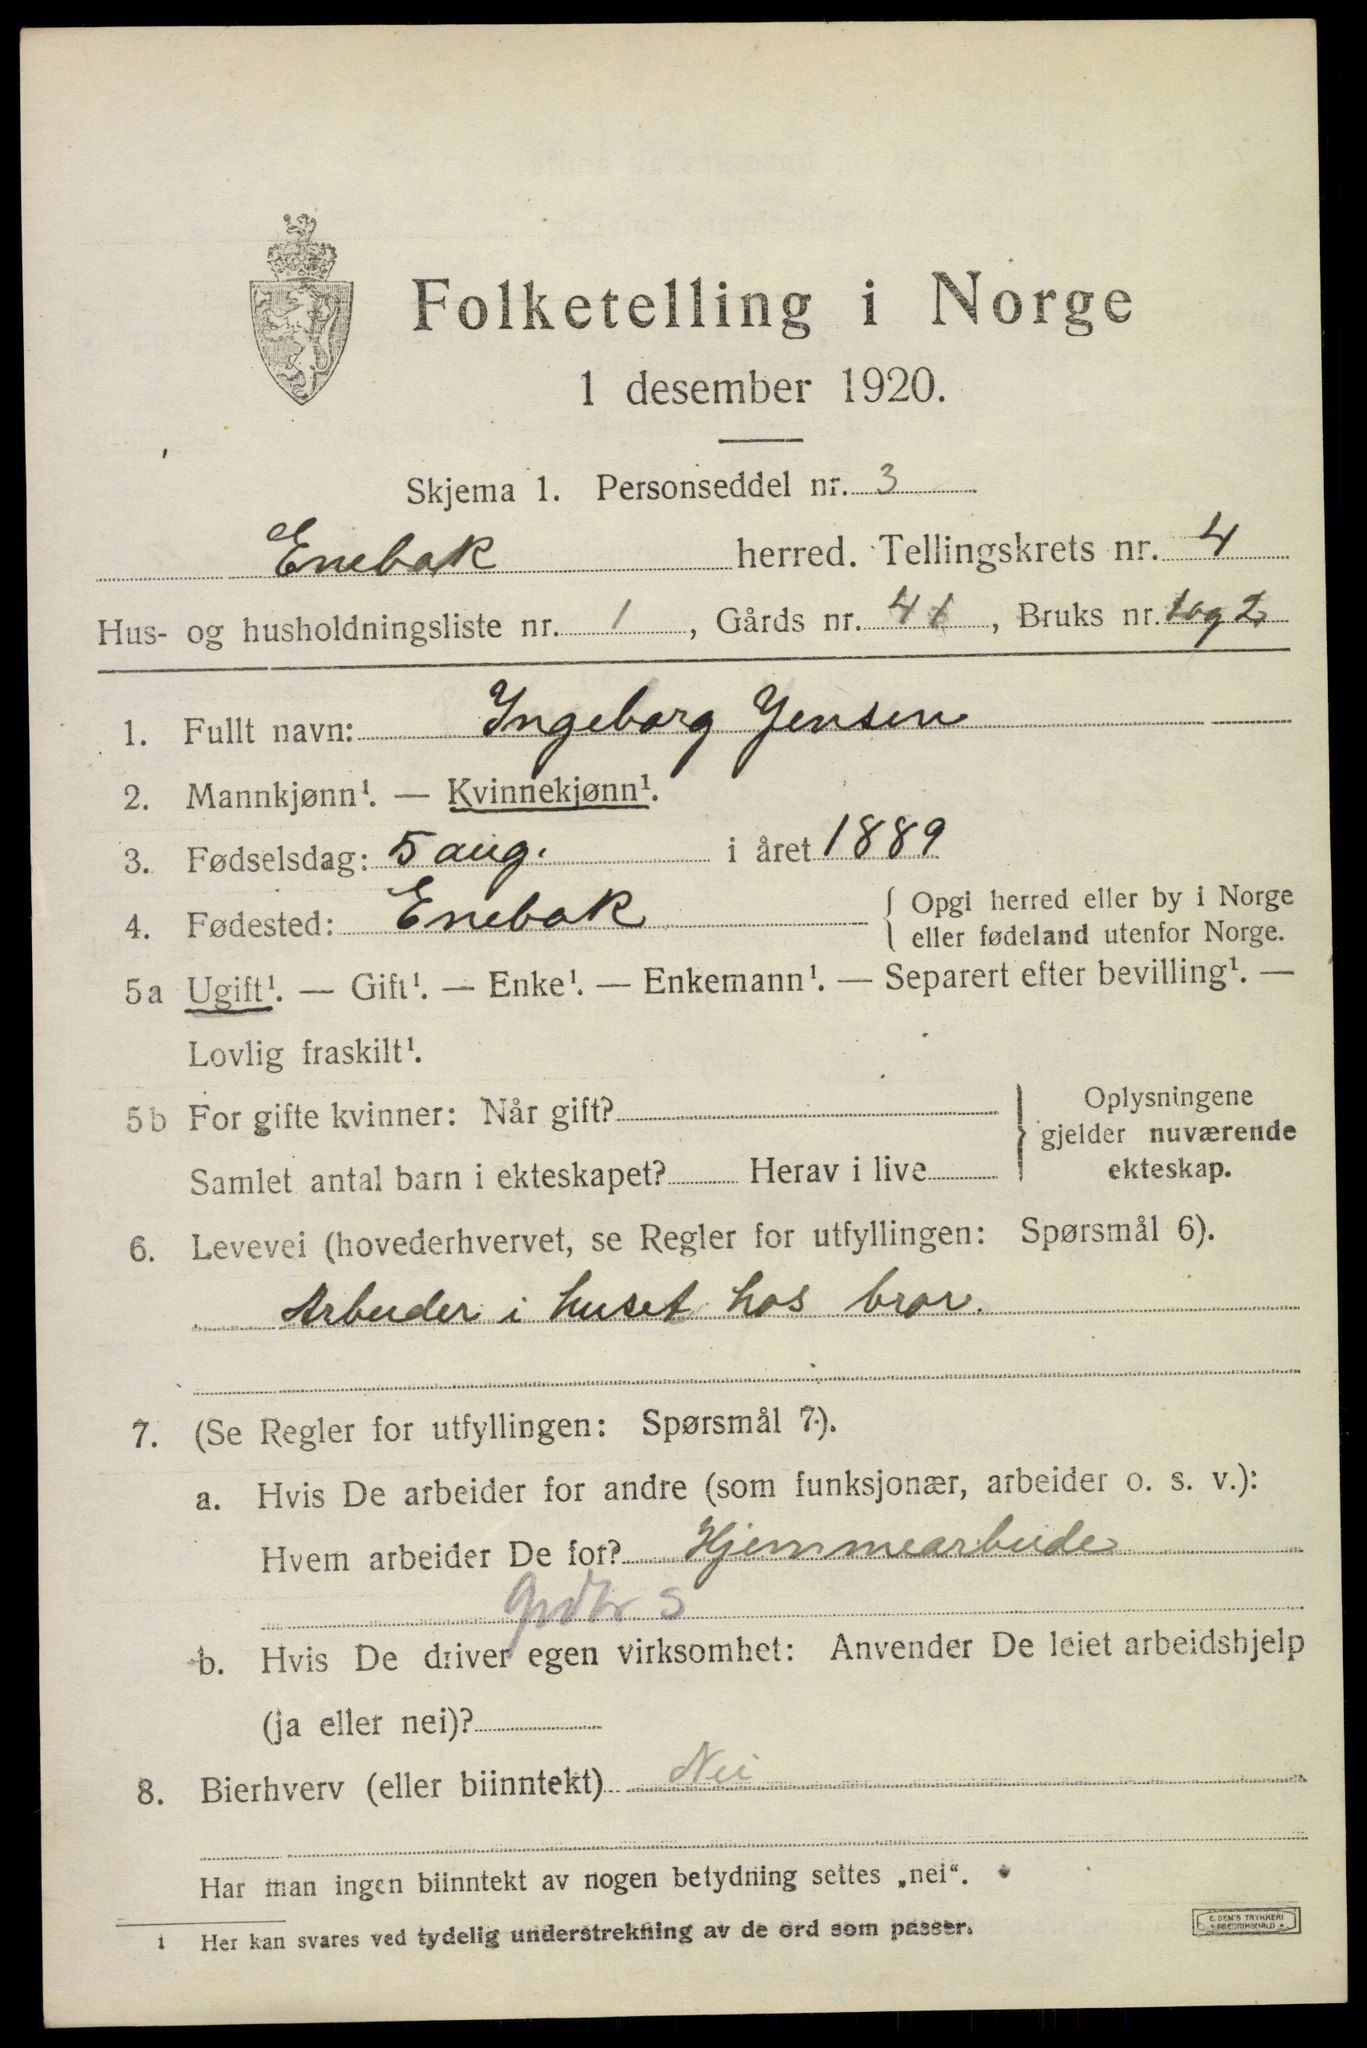 Folketelling i Norge
1 desember 1920.
Skjema 1. Personseddel nr. 3
Enebak herred. Tellingskrets nr. 4
Hus- og husholdningsliste nr. 1, Gårds nr. 41, Bruks nr. 1 og 2
1. Fullt navn: Ingeborg Jensen
2. Mannkjønn¹. — Kvinnekjønn¹.
3. Fødselsdag: 5 aug. i året 1889
4. Fødested: Enebak { Opgi herred eller by i Norge
eller fødeland utenfor Norge.
5a Ugift¹. — Gift¹. — Enke¹. — Enkemann¹. — Separert efter bevilling¹. —
Lovlig fraskilt¹.
5b For gifte kvinner: Når gift? } Oplysningene
gjelder nuværende
Samlet antal barn i ekteskapet? Herav i live ekteskap.
6. Levevei (hovederhvervet, se Regler for utfyllingen: Spørsmål 6).
Arbeider i huset hos bror.
7. (Se Regler for utfyllingen: Spørsmål 7).
a. Hvis De arbeider for andre (som funksjonær, arbeider o. s. v.):
Hvem arbeider De for? Hjemmearbeide
s
b. Hvis De driver egen virksomhet: Anvender De leiet arbeidshjelp
(ja eller nei)?
8. Bierhverv (eller biinntekt) Nei
Har man ingen biinntekt av nogen betydning settes „nei“.
1 Her kan svares ved tydelig understrekning av de ord som passer.
E. SEM'S TRYKKERI
FREDRIKSHALD